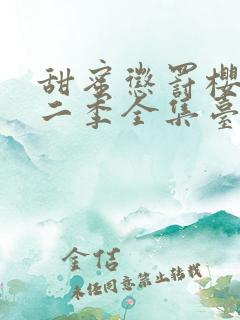 甜蜜懲罰櫻
二季全集臺
金佶
未经同意禁止转载